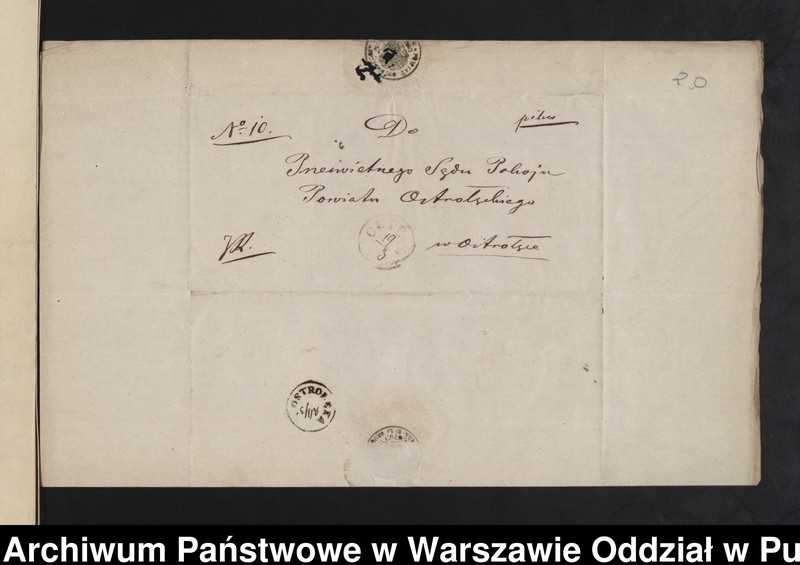 20
No. 10.
Do
pilno
Prześwietnego Sądu Pokoju
Powiatu Ostrołęckiego
19
3
w Ostrołęce
OSTROŁĘKA
Archiwum Państwowe w Warszawie Oddział w Pu